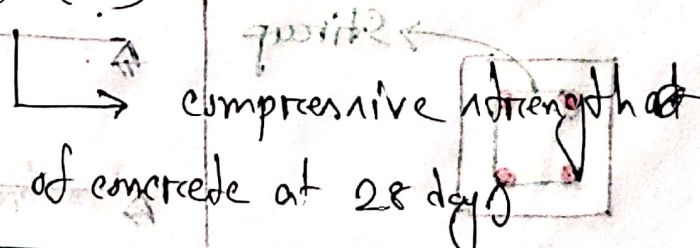 compressive strength
of concrete at 28 days